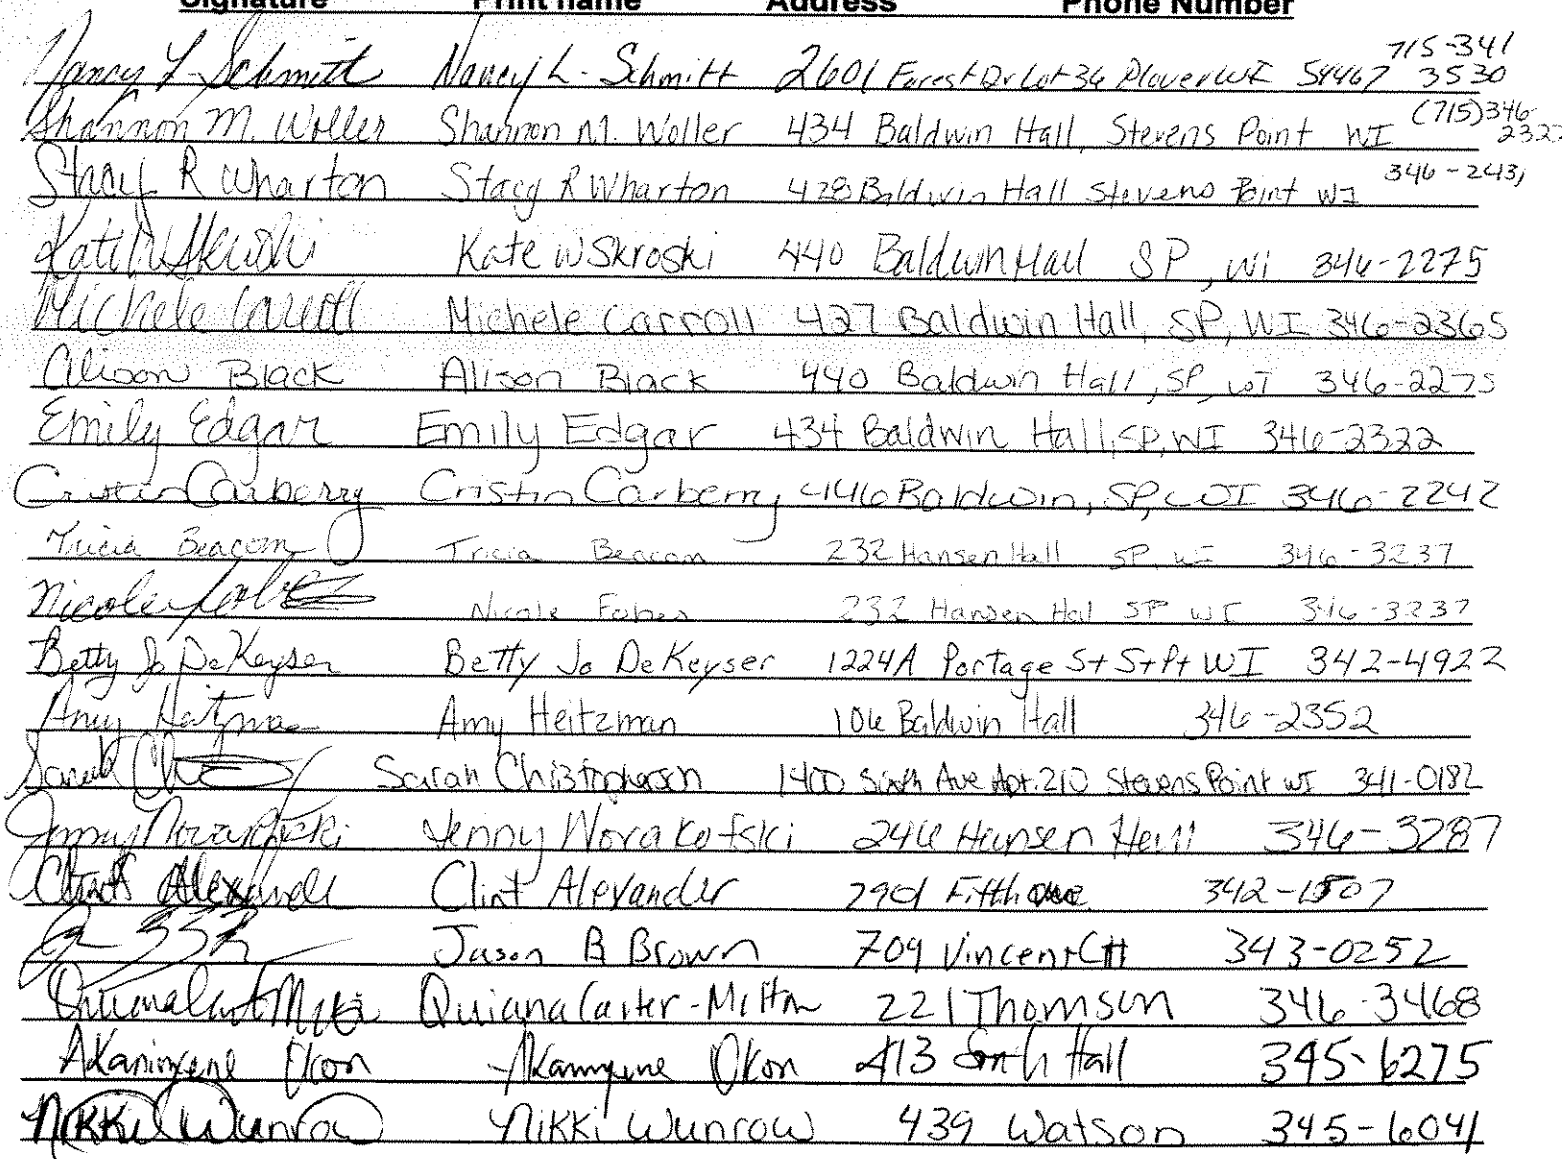 Signature Print name Address Phone Number
Nancy L. Schmitt Nancy L. Schmitt 2601 Forest Dr Lot 36 Plover WI 54467 715-341 3530
Shannon M. Woller Shannon M. Woller 434 Baldwin Hall, Stevens Point WI (715)346 232
Stacy R Wharton Stacy R Wharton 428 Baldwin Hall Stevens Point WI 346-243
Kate W Skroski 440 Baldwin Hall SP, WI 346-2275
Michele Carroll Michele Carroll 427 Baldwin Hall, SP, WI 346-2365
Alison Black Alison Black 440 Baldwin Hall, SP, WI 346-2275
Emily Edgar Emily Edgar 434 Baldwin Hall, SP, WI 346-2322
Cristin Carberry Cristin Carberry 446 Baldwin, SP, WI 346-2242
Tricia Beacom Tricia Beacom 232 Hansen Hall SP, WI 346-3237
Nicole Nicole Forbes 232 Hansen Hall SP WI 346-3237
Betty Jo DeKeyser Betty Jo DeKeyser 1224A Portage St St Pt WI 342-4922
Amy Heitzman Amy Heitzman 106 Baldwin Hall 346-2352
Sarah Sarah Christopherson 1400 Sixth Ave Apt. 210 Stevens Point WI 341-0182
Jenny Novakofski Jenny Novakofski 246 Hansen Hall 346-3287
Clint Alexander Clint Alexander 2901 Fifth ave 342-1507
Jason B Brown 709 Vincent Ct 343-0252
Quiana Carter-Milton 221 Thomson 346-3468
Akaninyene Okon Akaninyene Okon 413 Smith Hall 345-6275
Nikki Wunrow Nikki Wunrow 439 Watson 345-6041